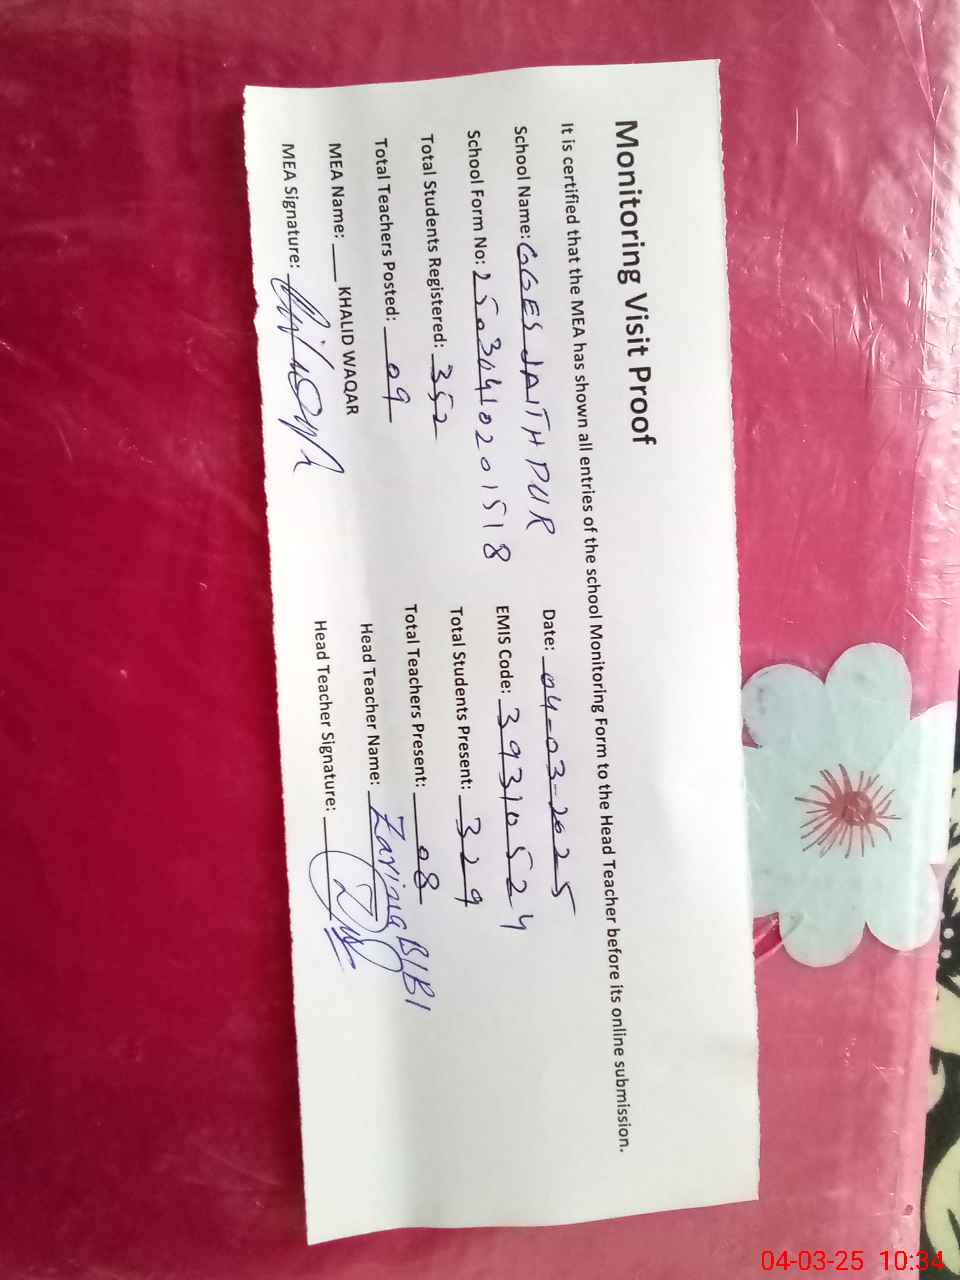 Monitoring Visit Proof
It is certified that the MEA has shown all entries of the school Monitoring Form to the Head Teacher before its online submission.
School Name: GGES JAITHPUR Date: 04-03-2025
School Form No: 25030410201518 EMIS Code: 39310524
Total Students Registered: 352 Total Students Present: 329
Total Teachers Posted: 09 Total Teachers Present: 08
MEA Name: KHALID WAQAR Head Teacher Name: Zarina BIBI
MEA Signature: Head Teacher Signature:
04-03-25 10:34